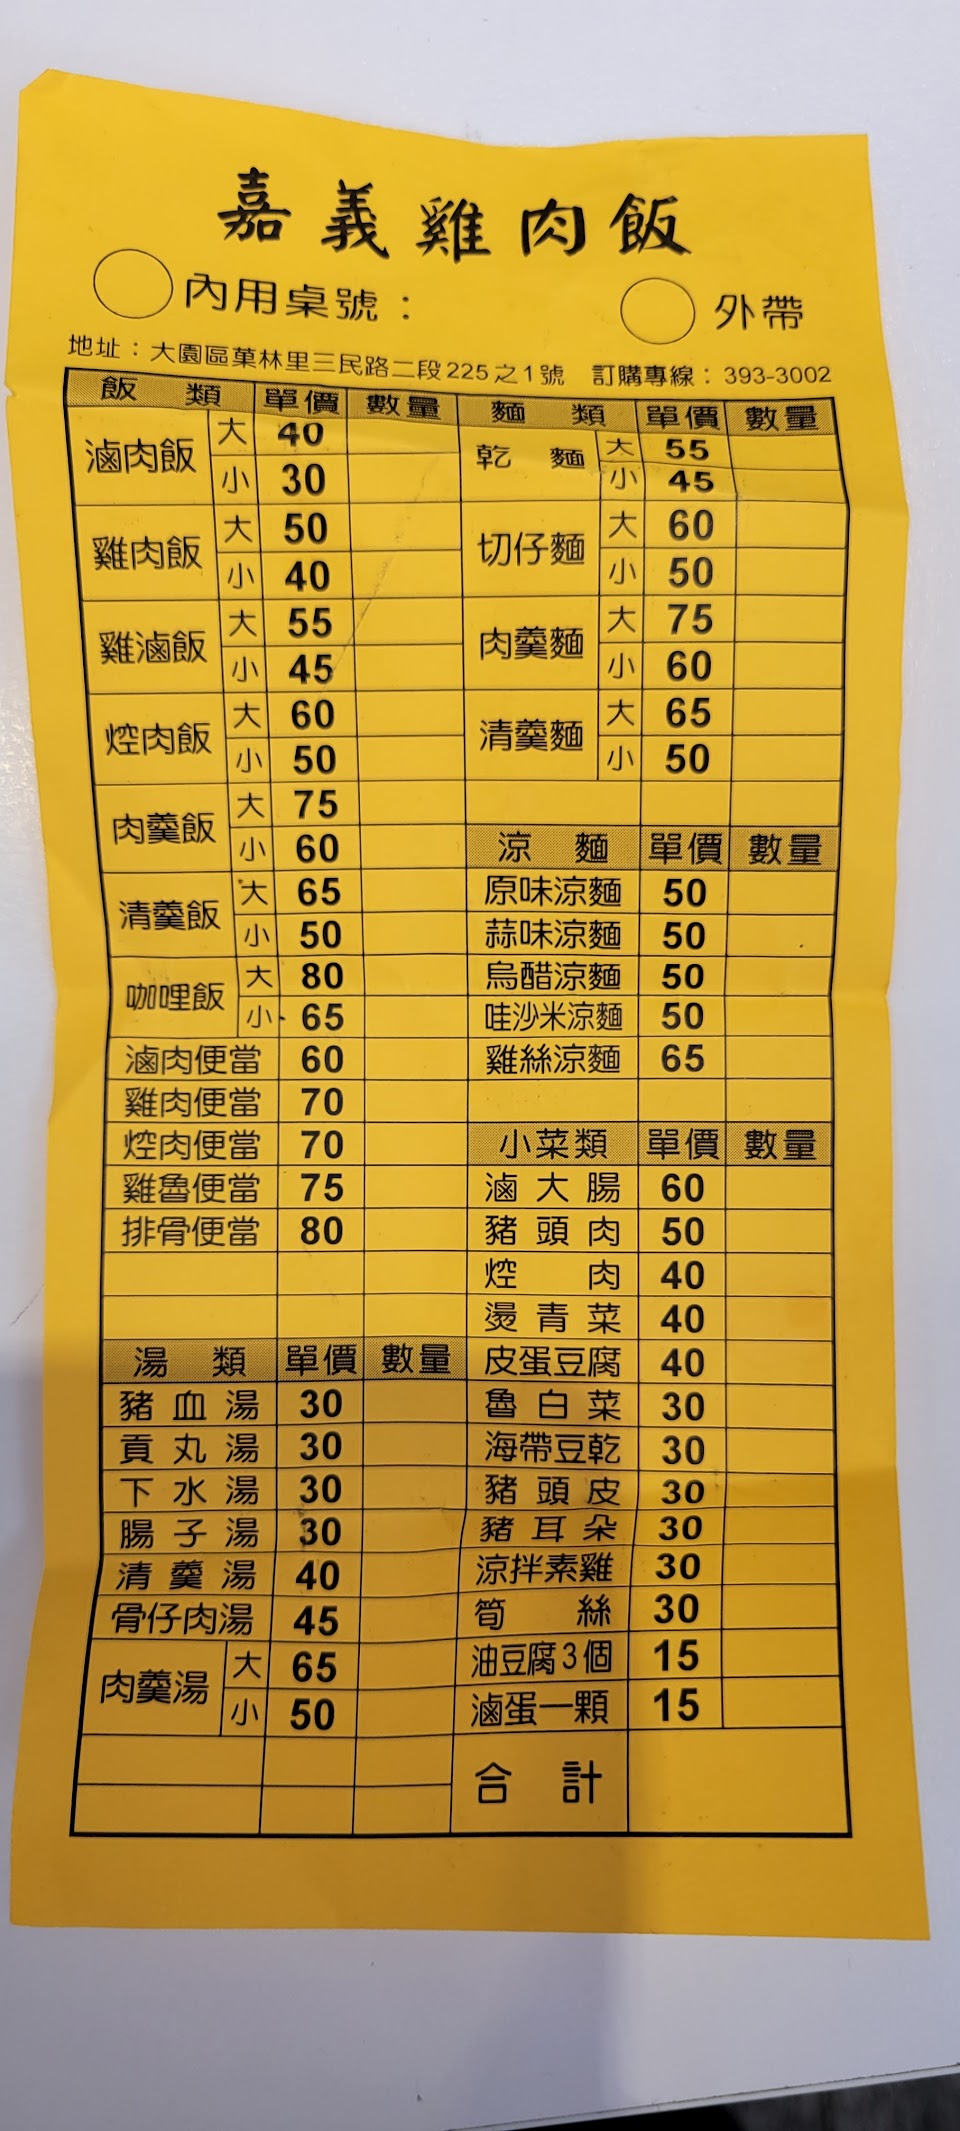 嘉義雞肉飯
內用桌號：　外帶
地址：大園區菓林里三民路二段225之1號　訂購專線：393-3002
飯類 單價 數量
滷肉飯 大 40
小 30
雞肉飯 大 50
小 40
雞滷飯 大 55
小 45
焢肉飯 大 60
小 50
肉羹飯 大 75
小 60
清羹飯 大 65
小 50
咖哩飯 大 80
小 65
滷肉便當 60
雞肉便當 70
焢肉便當 70
雞魯便當 75
排骨便當 80
湯類 單價 數量
豬血湯 30
貢丸湯 30
下水湯 30
腸子湯 30
清羹湯 40
骨仔肉湯 45
肉羹湯 大 65
小 50
麵類 單價 數量
乾麵 大 55
小 45
切仔麵 大 60
小 50
肉羹麵 大 75
小 60
清羹麵 大 65
小 50
涼麵 單價 數量
原味涼麵 50
蒜味涼麵 50
烏醋涼麵 50
哇沙米涼麵 50
雞絲涼麵 65
小菜類 單價 數量
滷大腸 60
豬頭肉 50
焢肉 40
燙青菜 40
皮蛋豆腐 40
魯白菜 30
海帶豆乾 30
豬頭皮 30
豬耳朵 30
涼拌素雞 30
筍絲 30
油豆腐3個 15
滷蛋一顆 15
合計